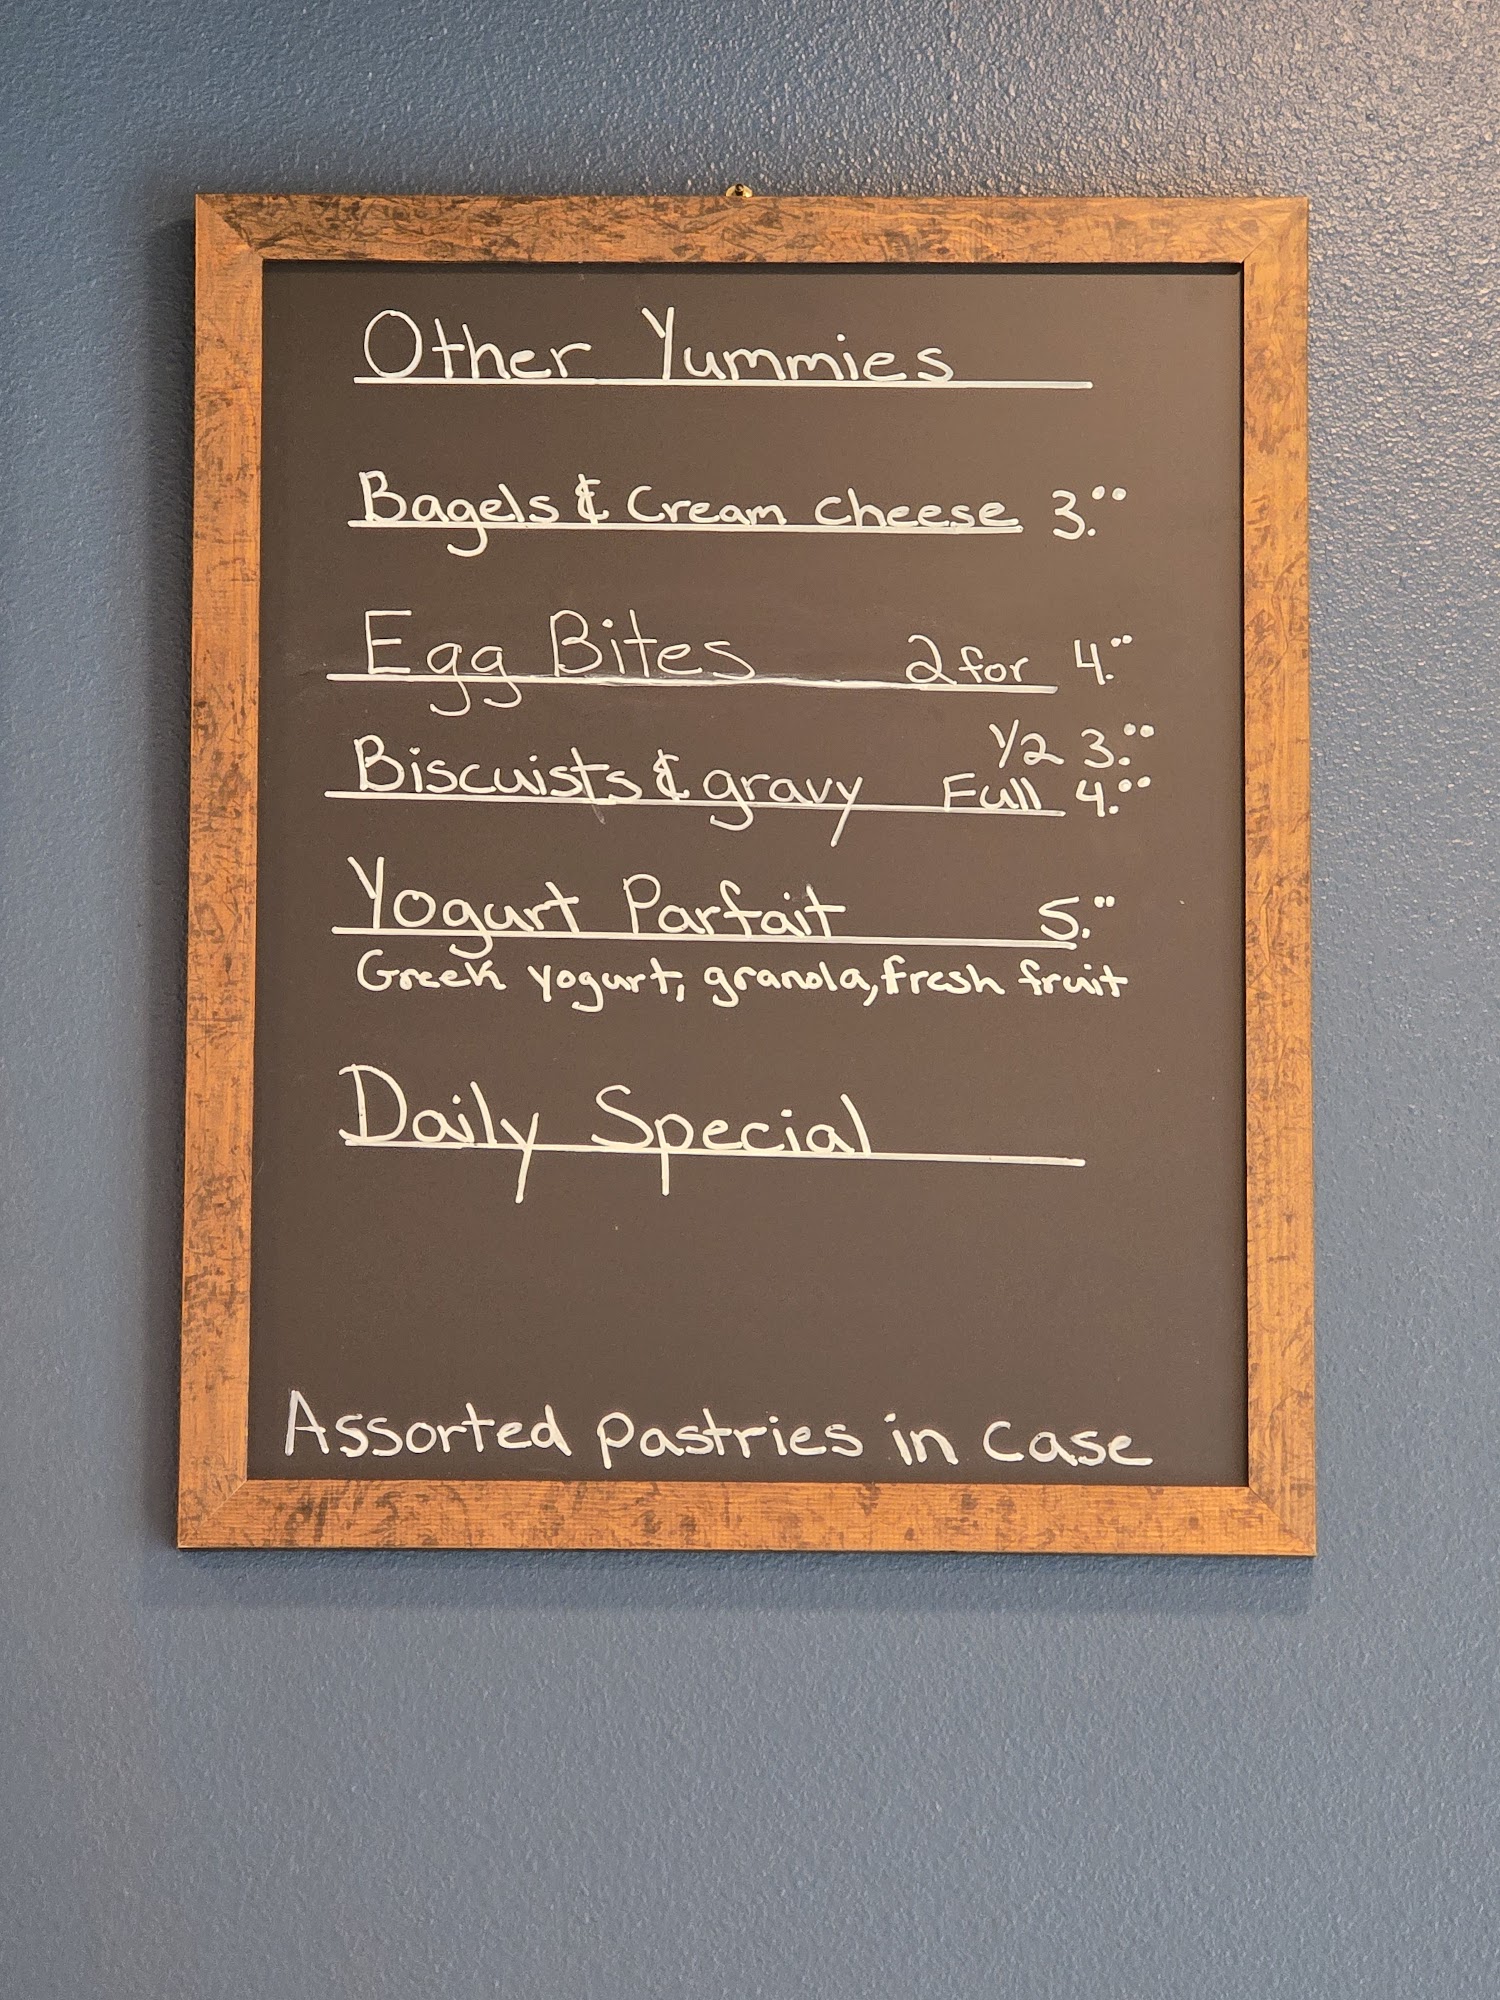 Other Yummies
Bagels & Cream cheese 3.00
Egg Bites 2 for 4.00
Biscuists & gravy 1/2 3.00
Full 4.00
Yogurt Parfait 5.00
Greek yogurt, granola, fresh fruit
Daily Special
Assorted pastries in case